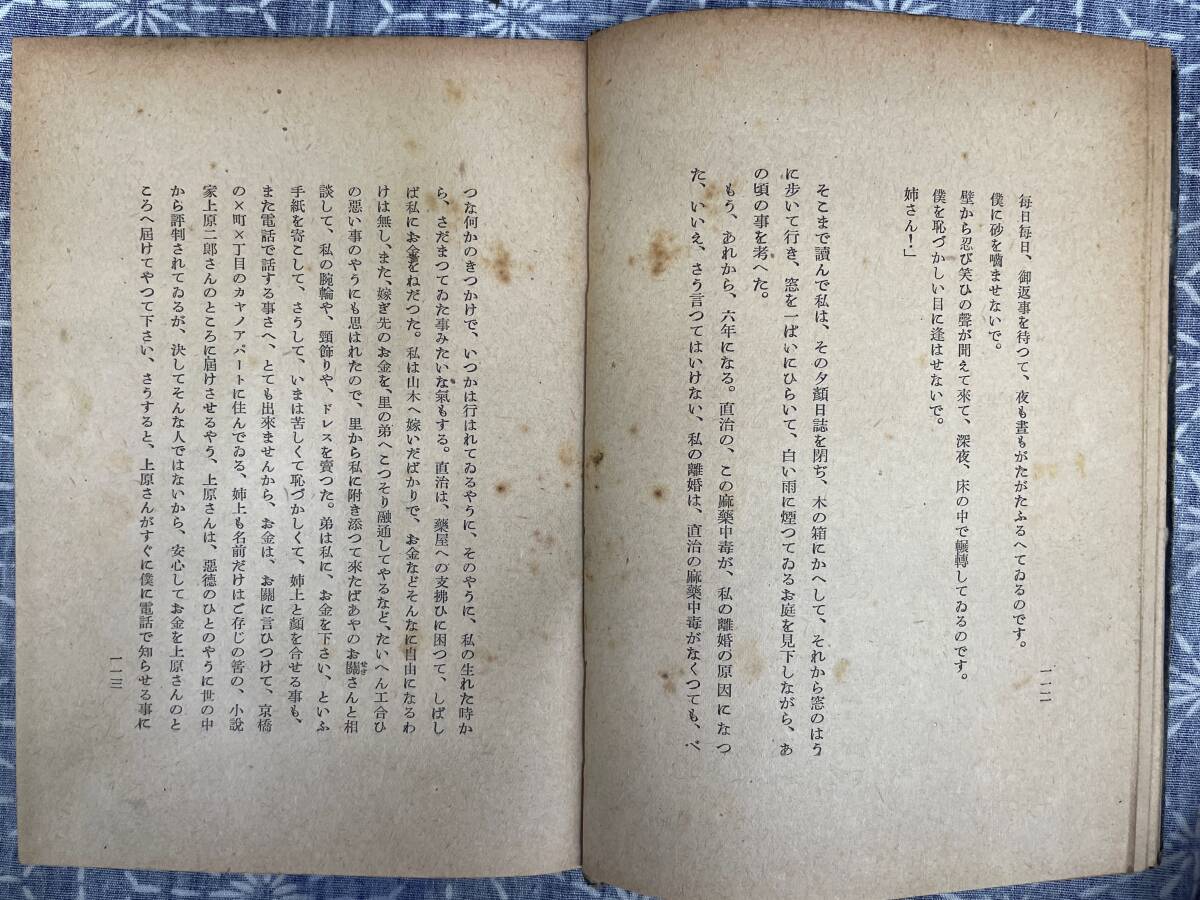 毎日毎日、御返事を待つて、夜も晝もがたがたふるへてゐるのです。
僕に砂を嚙ませないで。
壁から忍び笑ひの聲が聞えて來て、深夜、床の中で輾轉してゐるのです。
僕を恥づかしい目に逢はせないで。
姉さん！」
そこまで讀んで私は、その夕顏日誌を閉ぢ、木の箱にかへして、それから窓のはう
に歩いて行き、窓を一ぱいにひらいて、白い雨に煙つてゐるお庭を見下しながら、あ
の頃の事を考へた。
もう、あれから、六年になる。直治の、この麻藥中毒が、私の離婚の原因になつ
た、いいえ、さう言つてはいけない、私の離婚は、直治の麻藥中毒がなくつても、べ
一一二
つな何かのきつかけで、いつかは行はれてゐるやうに、そのやうに、私の生れた時か
ら、さだまつてゐた事みたいな氣もする。直治は、藥屋への支拂ひに困つて、しばし
ば私にお金をねだつた。私は山木へ嫁いだばかりで、お金などそんなに自由になるわ
けは無し、また、嫁ぎ先のお金を、里の弟へこつそり融通してやるなど、たいへん工合ひ
の惡い事のやうにも思はれたので、里から私に附き添つて來たばあやのお關さんと相
談して、私の腕輪や、頸飾りや、ドレスを賣つた。弟は私に、お金を下さい、といふ
手紙を寄こして、さうして、いまは苦しくて恥づかしくて、姉上と顏を合せる事も、
また電話で話する事さへ、とても出來ませんから、お金は、お關に言ひつけて、京橋
の×町×丁目のカヤノアパートに住んでゐる、姉上も名前だけはご存じの筈の、小説
家上原二郎さんのところに屆けさせるやう、上原さんは、惡德のひとのやうに世の中
から評判されてゐるが、決してそんな人ではないから、安心してお金を上原さんのと
ころへ屆けてやつて下さい、さうすると、上原さんがすぐに僕に電話で知らせる事に
一一三